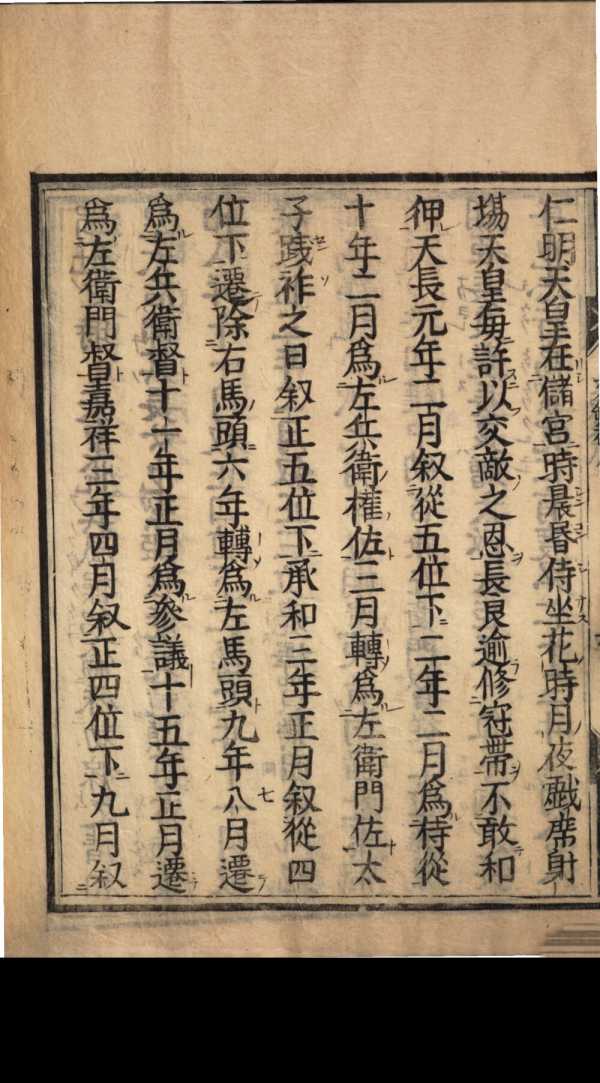 仁明天皇在儲宮時晨昏侍坐花時月夜戲席射
塲天皇毎許以交敵之恩長良逾修冠帶不敢和
狎天長元年二月叙從五位下二年二月爲侍從
十年二月爲左兵衛權佐三月轉爲左衛門佐太
子踐祚之日叙正五位下承和三年正月叙從四
位下遷除右馬頭六年轉爲左馬頭九年八七月遷
爲左兵衛督十一年正月爲參議十五年正月遷
爲左衛門督嘉祥三年四月叙正四位下九月叙